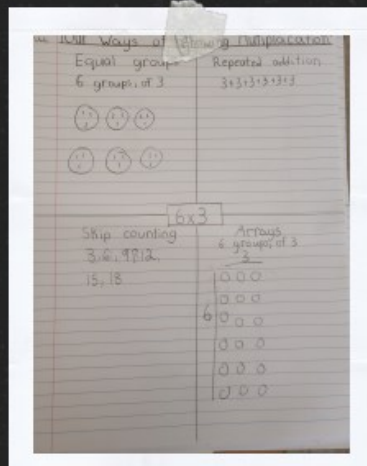 Four Ways of Showing Multiplacation
Equal groups
6 groups of 3
Repeated addition
3+3+3+3+3+3
6x3
Skip counting
3,6,9812,
15,18
Arrays
6 groups of 3
3
6